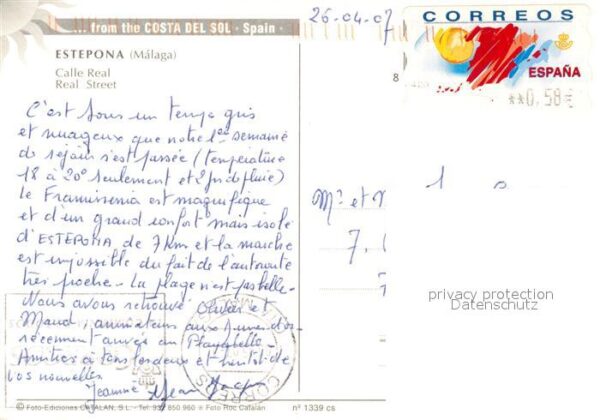 ... from the COSTA DEL SOL · Spain ·
ESTEPONA (Málaga)
Calle Real
Real Street
C'est sous un temps gris
et nuageux que notre 1ère semaine
de séjour s'est passée (température
18 à 20° seulement et
le est magnifique
et d'un grand confort mais isolé
d'ESTEPONA, de 7km et la marche
est impossible du fait de l'autoroute
très proche. La plage n'est pas belle.
Nous avons retrouvé Olivier et
Maud, animateurs aux
récemment arrivés au
Amitiés à tous les deux et bientôt de
vos nouvelles
Jeannine Jean
© Foto-Ediciones CATALAN, S.L. - Tel. 952 850 960 ★ Foto Roc Catalán
nº 1339 cs
26-04-07
CORREOS
ESPAÑA
**0,58€
8
Mr et
7.
CORREOS
privacy protection
Datenschutz